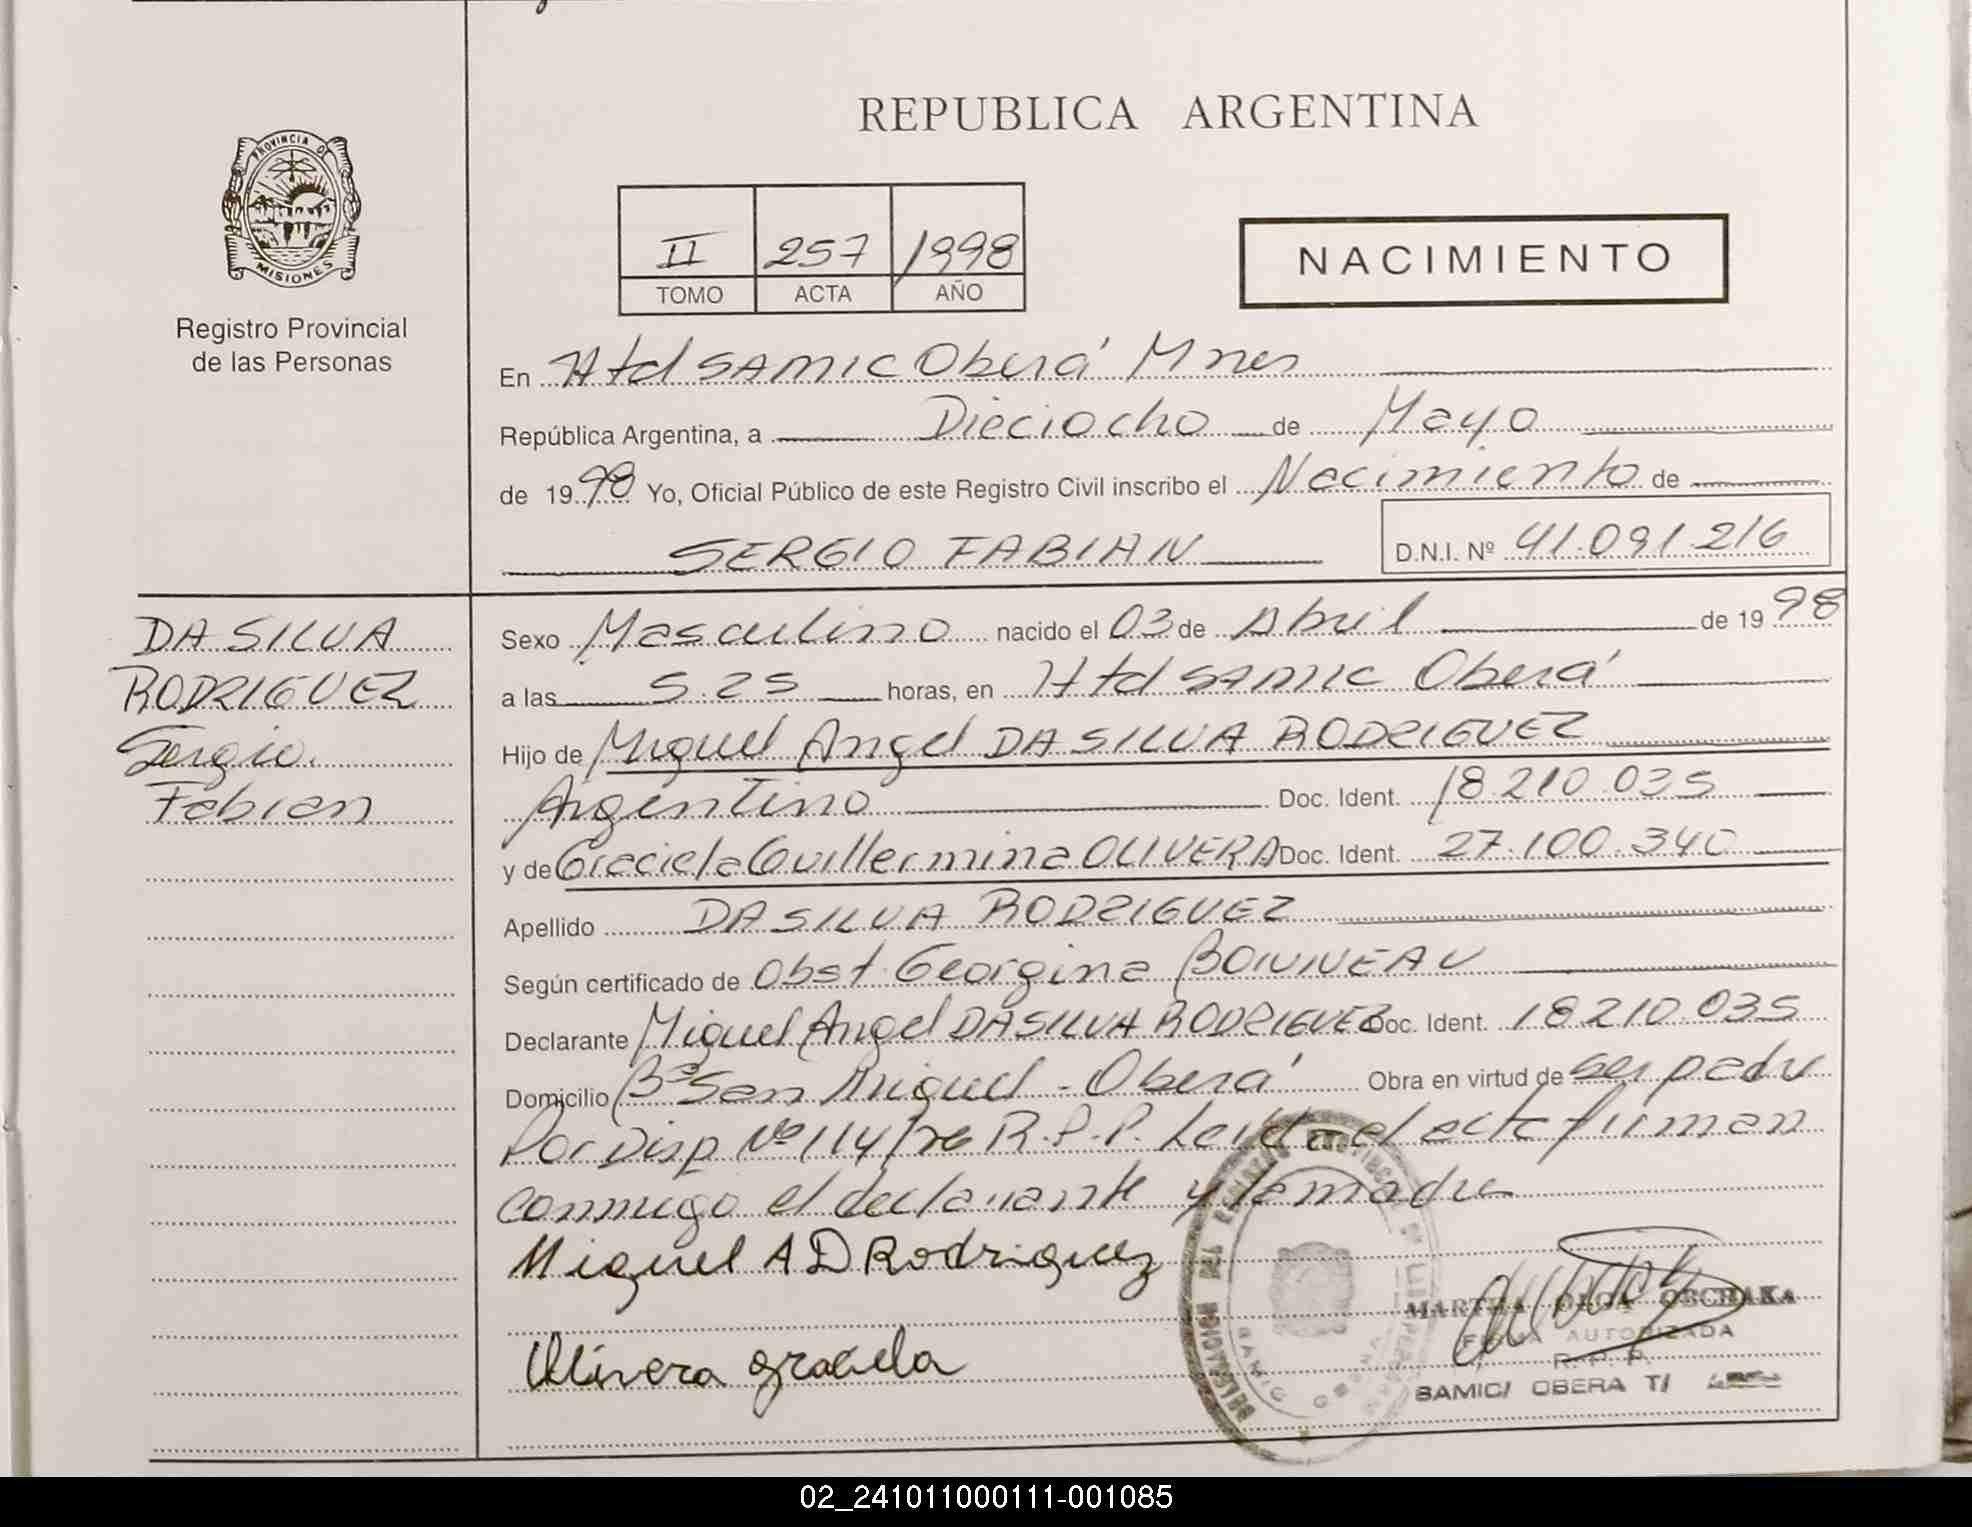 REPUBLICA ARGENTINA
PROVINCIA DE
MISIONES
Registro Provincial
de las Personas
II 257 1998
TOMO ACTA AÑO
NACIMIENTO
En Htal SAMIC Oberá Mnes
República Argentina, a Dieciocho de Mayo
de 1998 Yo, Oficial Público de este Registro Civil inscribo el Nacimiento de
SERGIO FABIAN D.N.I. Nº 41.091.216
DA SILVA
RODRIGUEZ
Sergio.
Fabian
Sexo Masculino nacido el 03 de Abril de 1998
a las 5.25 horas, en Htal SAMIC Oberá
Hijo de Miguel Angel DA SILVA RODRIGUEZ
Argentino Doc. Ident. 18.210.035
y de Graciela Guillermina OLIVERA Doc. Ident. 27.100.340
Apellido DA SILVA RODRIGUEZ
Según certificado de Obst. Georgina BOIVNEAU
Declarante Miguel Angel DA SILVA RODRIGUEZ Doc. Ident. 18.210.035
Domicilio Bº San Miguel - Oberá Obra en virtud de ser padre
Por Disp Nº 114/76 R.P.P. Leída el acta firman
conmigo el declarante y la madre
Miguel A D Rodriguez
Olivera graciela
MARTHA OLGA OBCHAKA
FIRMA AUTORIZADA
R. P. P.
SAMIC/ OBERA T/
02_241011000111-001085